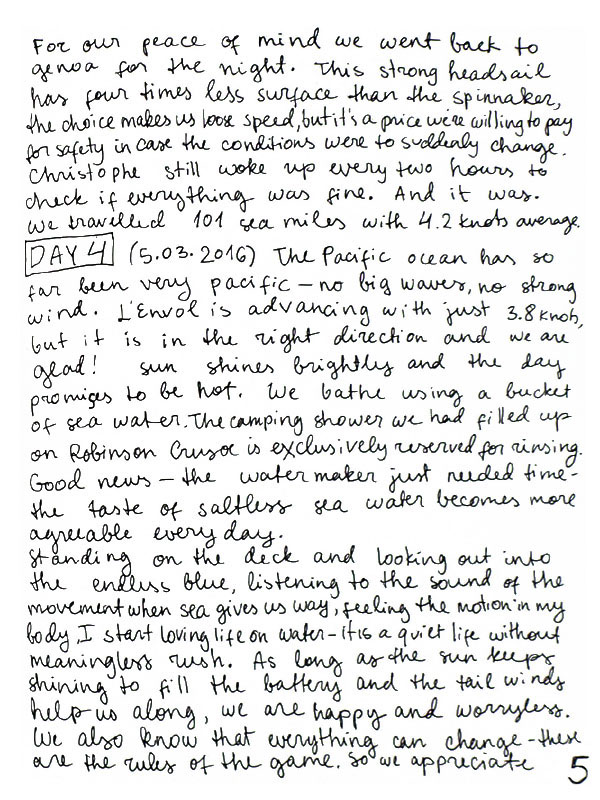 For our peace of mind we went back to
genoa for the night. This strong headsail
has four times less surface than the spinnaker,
the choice makes us loose speed, but it's a price we're willing to pay
for safety in case the conditions were to suddenly change.
Christophe still woke up every two hours to
check if everything was fine. And it was.
We travelled 101 sea miles with 4.2 knots average.
DAY 4 (5.03.2016) The Pacific ocean has so
far been very pacific – no big waves, no strong
wind. L'Envol is advancing with just 3.8 knots,
but it is in the right direction and we are
glad! Sun shines brightly and the day
promises to be hot. We bathe using a bucket
of sea water. The camping shower we had filled up
on Robinson Crusoe is exclusively reserved for rinsing.
Good news – the water maker just needed time –
the taste of saltless sea water becomes more
agreeable every day.
Standing on the deck and looking out into
the endless blue, listening to the sound of the
movement when sea gives us way, feeling the motion in my
body, I start loving life on water – it is a quiet life without
meaningless rush. As long as the sun keeps
shining to fill the battery and the tail winds
help us along, we are happy and worryless.
We also know that everything can change – these
are the rules of the game. So we appreciate 5